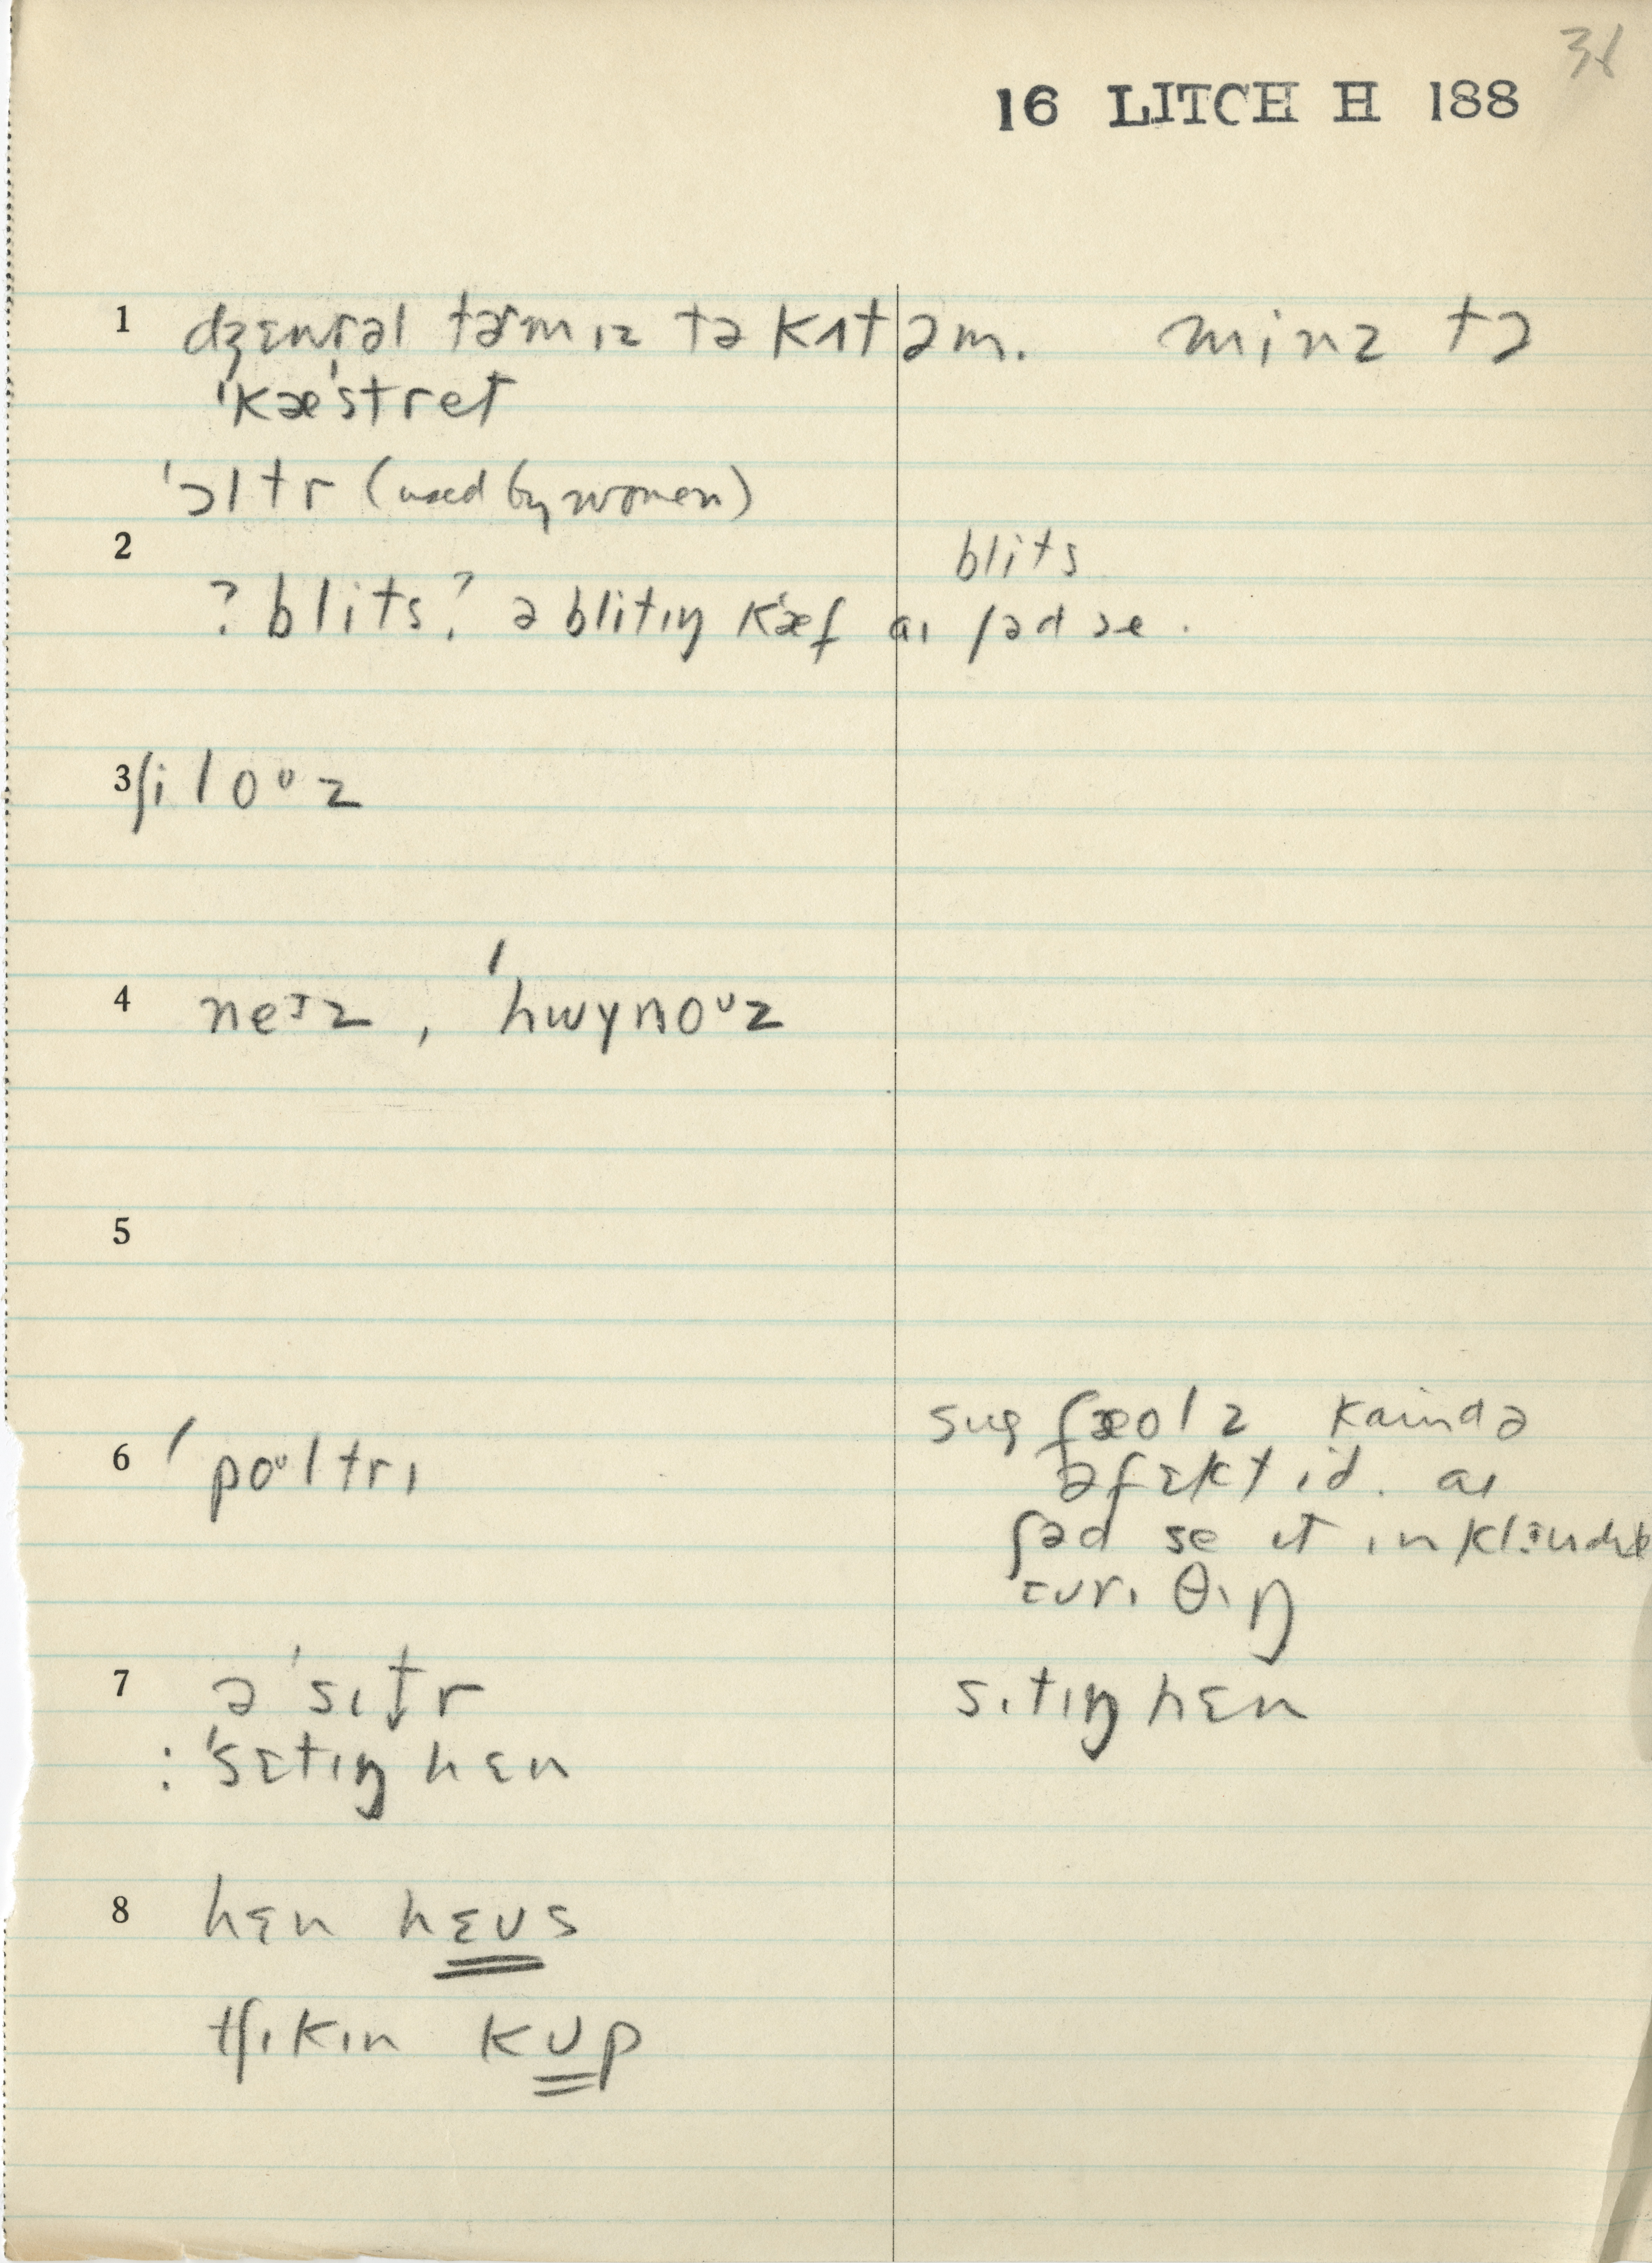 38
16 LITCH H 188
1 dʒɛnrəl tərm ɪz tə kʌt əm. minz tə
ˈkæˈstret
ˈɔltr (used by women)
2 blits
? blits? ə blitɪŋ kæf aɪ ʃəd se.
3 ʃi loᶷz
4 neᶦz, ˈhwɪnoᶷz
5
6 ˈpoᶷltrɪ fæolz kaində
əfɛktid. aɪ
ʃəd se ɪt
ɛvrɪ θɪŋ
7 ə ˈsɪt̬r sɪtɪŋ hɛn
: ˈsɛtɪŋ hɛn
8 hɛn hɛʊs
tʃɪkɪn kʊp